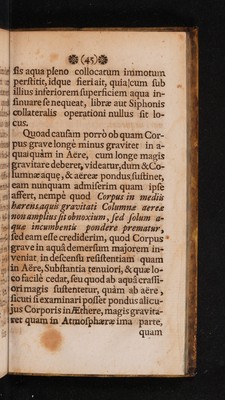 (45)
sis aqua pleno collocatum immotum
perstitit, idque fieri ait, quia cum sub
illius inferiorem superficiem aqua in-
sinuare se nequeat, libræ aut Siphonis
collateralis operationi nullus sit lo-
cus.
Quoad causam porrò ob quam Cor-
pus grave longè minus gravitet in a-
quaiquàm in Aere, cum longe magis
gravitare deberet, videatur, dum & Co-
lumnæ aquę, & aereæ pondus sustinet,
eam nunquam admiserim quam ipse
affert, nempè quod Corpus in mediis
hærens aquis gravitati Columnæ aereæ
non amplius sit obnoxium, sed solum a-
quæ incumbentis pondere prematur,
sed eam esse crediderim, quod Corpus
grave in aquâ demersum majorem in-
veniat in descensu resistentiam quam
in Aëre, Substantia tenuiori, & quæ lo-
co facilè cedat, seu quod ab aquâ crassi-
ori magis sustentetur, quàm ab aëre,
sicuti si examinari posset pondus alicu-
jus Corporis in Æthere, magis gravita-
ret quam in Atmosphæræ ima parte,
quam